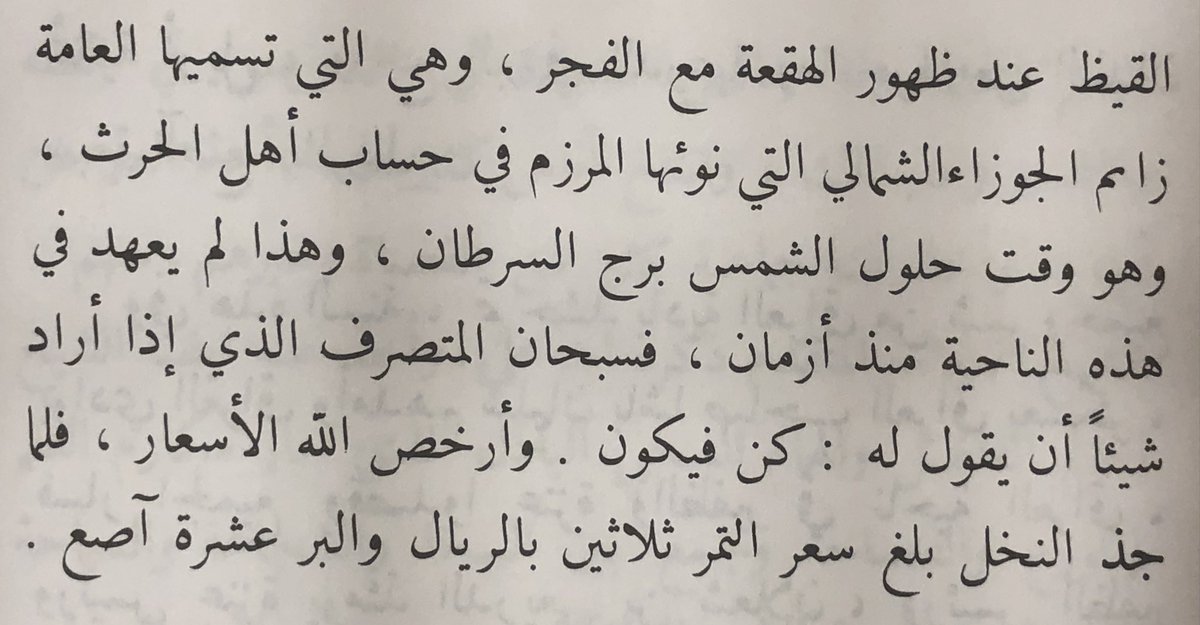 القيظ عند ظهور الهقعة مع الفجر ، وهي التي تسميها العامة
زاىم الجوزاءالشمالي التي نوئها المرزم في حساب أهل الحرث ،
وهو وقت حلول الشمس برج السرطان ، وهذا لم يعهد في
هذه الناحية منذ أزمان ، فسبحان المتصرف الذي إذا أراد
شيئاً أن يقول له : كن فيكون . وأرخص الله الأسعار ، فلما
جذ النخل بلغ سعر التمر ثلاثين بالريال والبر عشرة آصع .